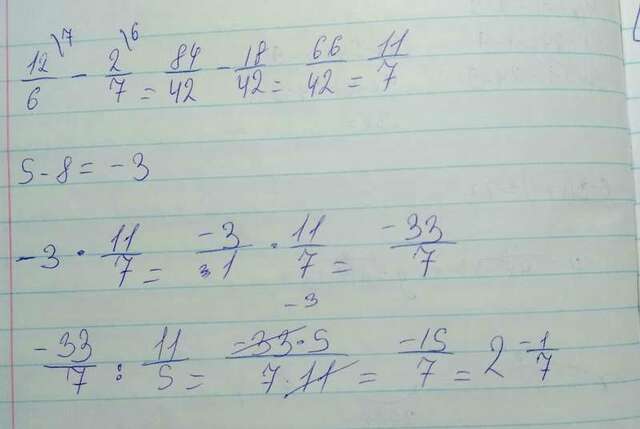 12\7/6 - 2\6/7 = 84/42 - 18/42 = 66/42 = 11/7
5-8 = -3
-3 · 11/7 = -3/1 · 11/7 = -33/7
-3
-33/7 : 11/5 = -33·5/7·11 = -15/7 = 2 -1/7